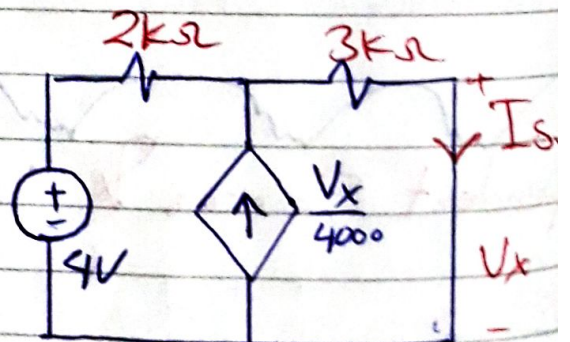 2kΩ 3kΩ
+
Is
+
-
4V
Vx
4000
Vx
-